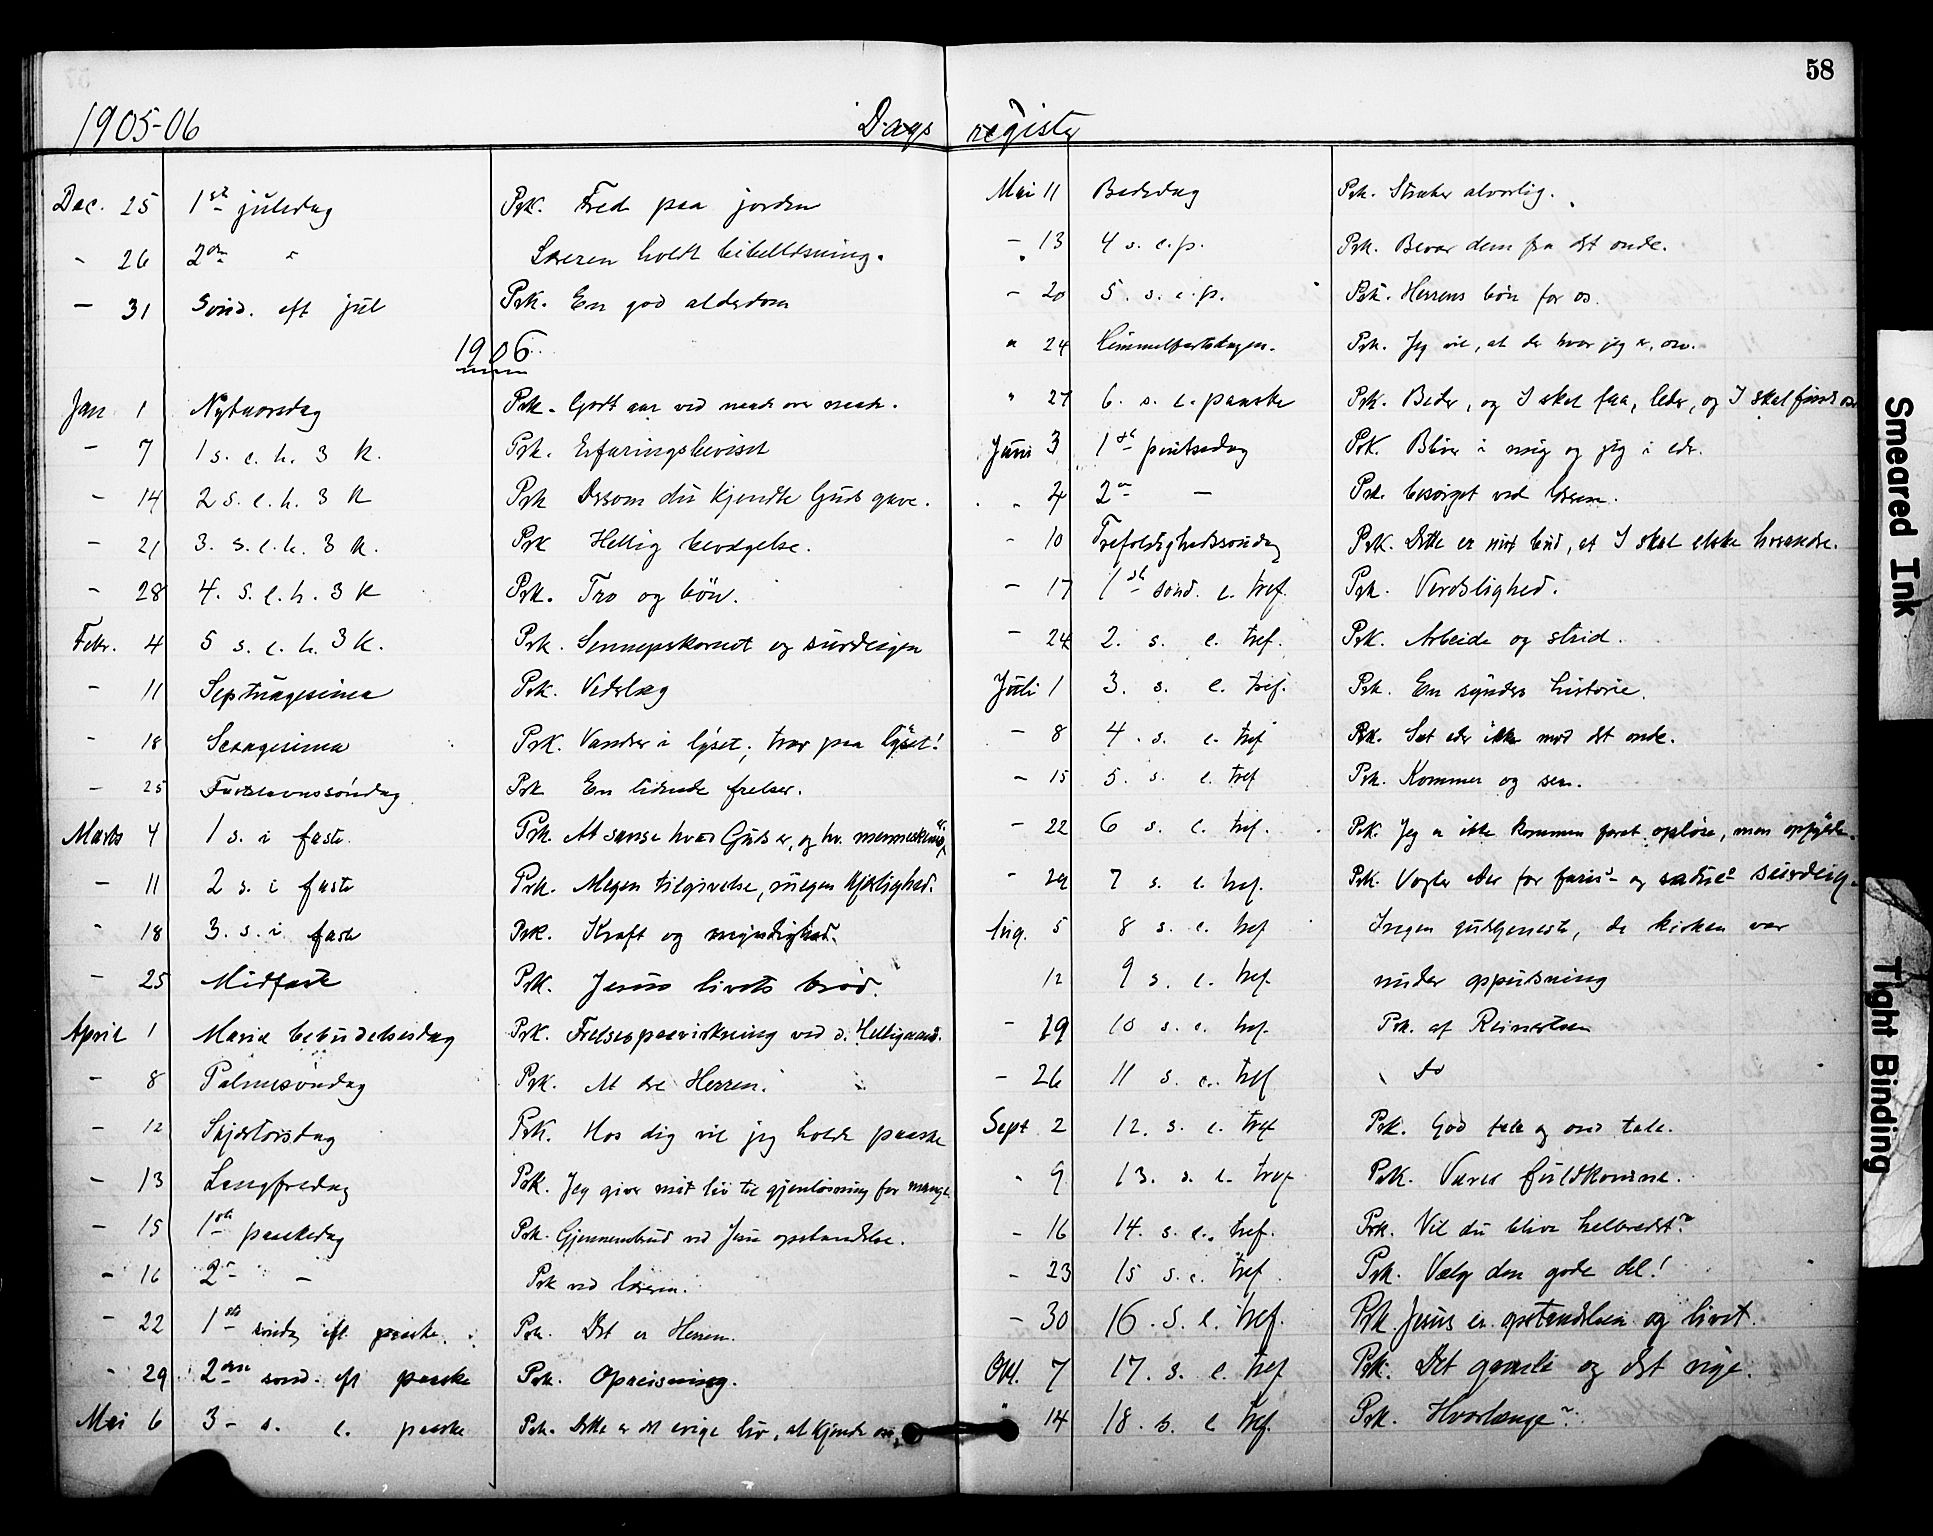 58
1905-06 Dagsregister
Dec. 25 1ste juledag Prk. Fred paa jorden
- 26 2den " Læreren holdt bibellæsning.
- 31 Sönd. eft jul Prk. En god alderdom
1906
Jan 1 Nytaarsdag Prk. Godt aar ved naade over naade.
- 7 1 s. e. h. 3 K. Prk. Erfaringsbeviset
- 14 2 s. e. h. 3 K Prk Dersom du kjendte Guds gave.
- 21 3. s. e. h. 3 K. Prk Hellig bevægelse.
- 28 4. s. e. h. 3 K Prk. Tro og bön.
Febr. 4 5 s. e. h. 3 K. Prk. Sennepskornet og surdeigen
- 11 Septuagesima Prk. Vederlag
- 18 Sexagesima Prk. Vandrer i lyset; tror paa lyset!
- 25 Fastelavnssöndag Prk En lidende frelser.
Marts 4 1 s. i faste. Prk. At sanse hvad Guds er, og hv. menneskens er
- 11 2 s. i faste Prk. Megen tilgivelse, megen kjærlighed.
- 18 3. s. i faste Prk. Kraft og myndighed.
- 25 Midfaste Prk. Jesus livets bröd.
April 1 Maria bebudelsesdag Prk. Frelsespaavirkning ved d. Helligaand.
- 8 Palmesöndag Prk. At ære Herren.
- 12 Skjærtorsdag Prk. Hos dig vil jeg holde paaske
- 13 Langfredag Prk. Jeg giver mit liv til gjenlösning for mange.
- 15 1ste paaskedag Prk. Gjennembrud ved Jesu opstandelse.
- 16 2en - Prk ved læreren.
- 22 1ste söndag eft. paaske. Prk. Det er Herren.
- 29 2den sönd. eft paaske Prk. Opreisning.
Mai 6 3- s. e. paaske Prk. Dette er det evige liv, at kjende osv.
Mai 11 Bededag Prk. Stræber alvorlig.
- 13 4 s. e. p. Prk. Bevar dem fra det onde.
- 20 5. s. e. p. Prk. Herrens bön for os.
" 24 Himmelfartsdagen. Prk. Jeg vil, at der hvor jeg er, osv.
" 27 6. s. e. paaske Prk. Beder, og I skal faa, leder, og I skal finde osv
Juni 3 1ste pintsedag Prk. Bliver i mig og jeg i eder.
" 4 2en - Prk. besörget ved læreren.
- 10 Trefoldighedssöndag Prk. Dette er mit bud, at I skal elske hverandre.
- 17 1ste sönd. e. tref. Prk. Verdslighed.
- 24 2. s. e. tref. Prk. Arbeide og strid.
Juli 1 3. s. e. tref. Prk. En synders historie.
- 8 4. s. e. tref Prk. Sæt eder ikke mod det onde.
- 15 5. s. e. tref Prk. Kommer og ser.
- 22 6 s. e. tref. Prk. Jeg er ikke kommen forat oplöse, men opfylde.
- 29 7 s. e. tref. Prk. Vogter eder for faris- og saduc- surdeig.
Aug. 5 8 s. e. tref Ingen gudstjeneste, da kirken var
12 9 s. e. tref. under oppudsning
- 19 10 s. e. tref. Prk. af Reinertsen
- 26 11 s. e. tref do
Sept 2 12. s. e. tref Prk. God tale og ond tale.
" 9 13. s. e. tref Prk. Værer fuldkomne.
- 16 14. s. e. tref. Prk. Vil du blive helbredet?
- 23 15 s. e. tref. Prk. Vælg den gode del!
- 30 16. s. e. tref. Prk. Jesus er opstandelsen og livet.
Okt. 7 17. s. e. tref Prk. Det gamle og det nye.
" 14 18. s. e tref. Prk. Hvorlænge?
Smeared Ink
Tight Binding